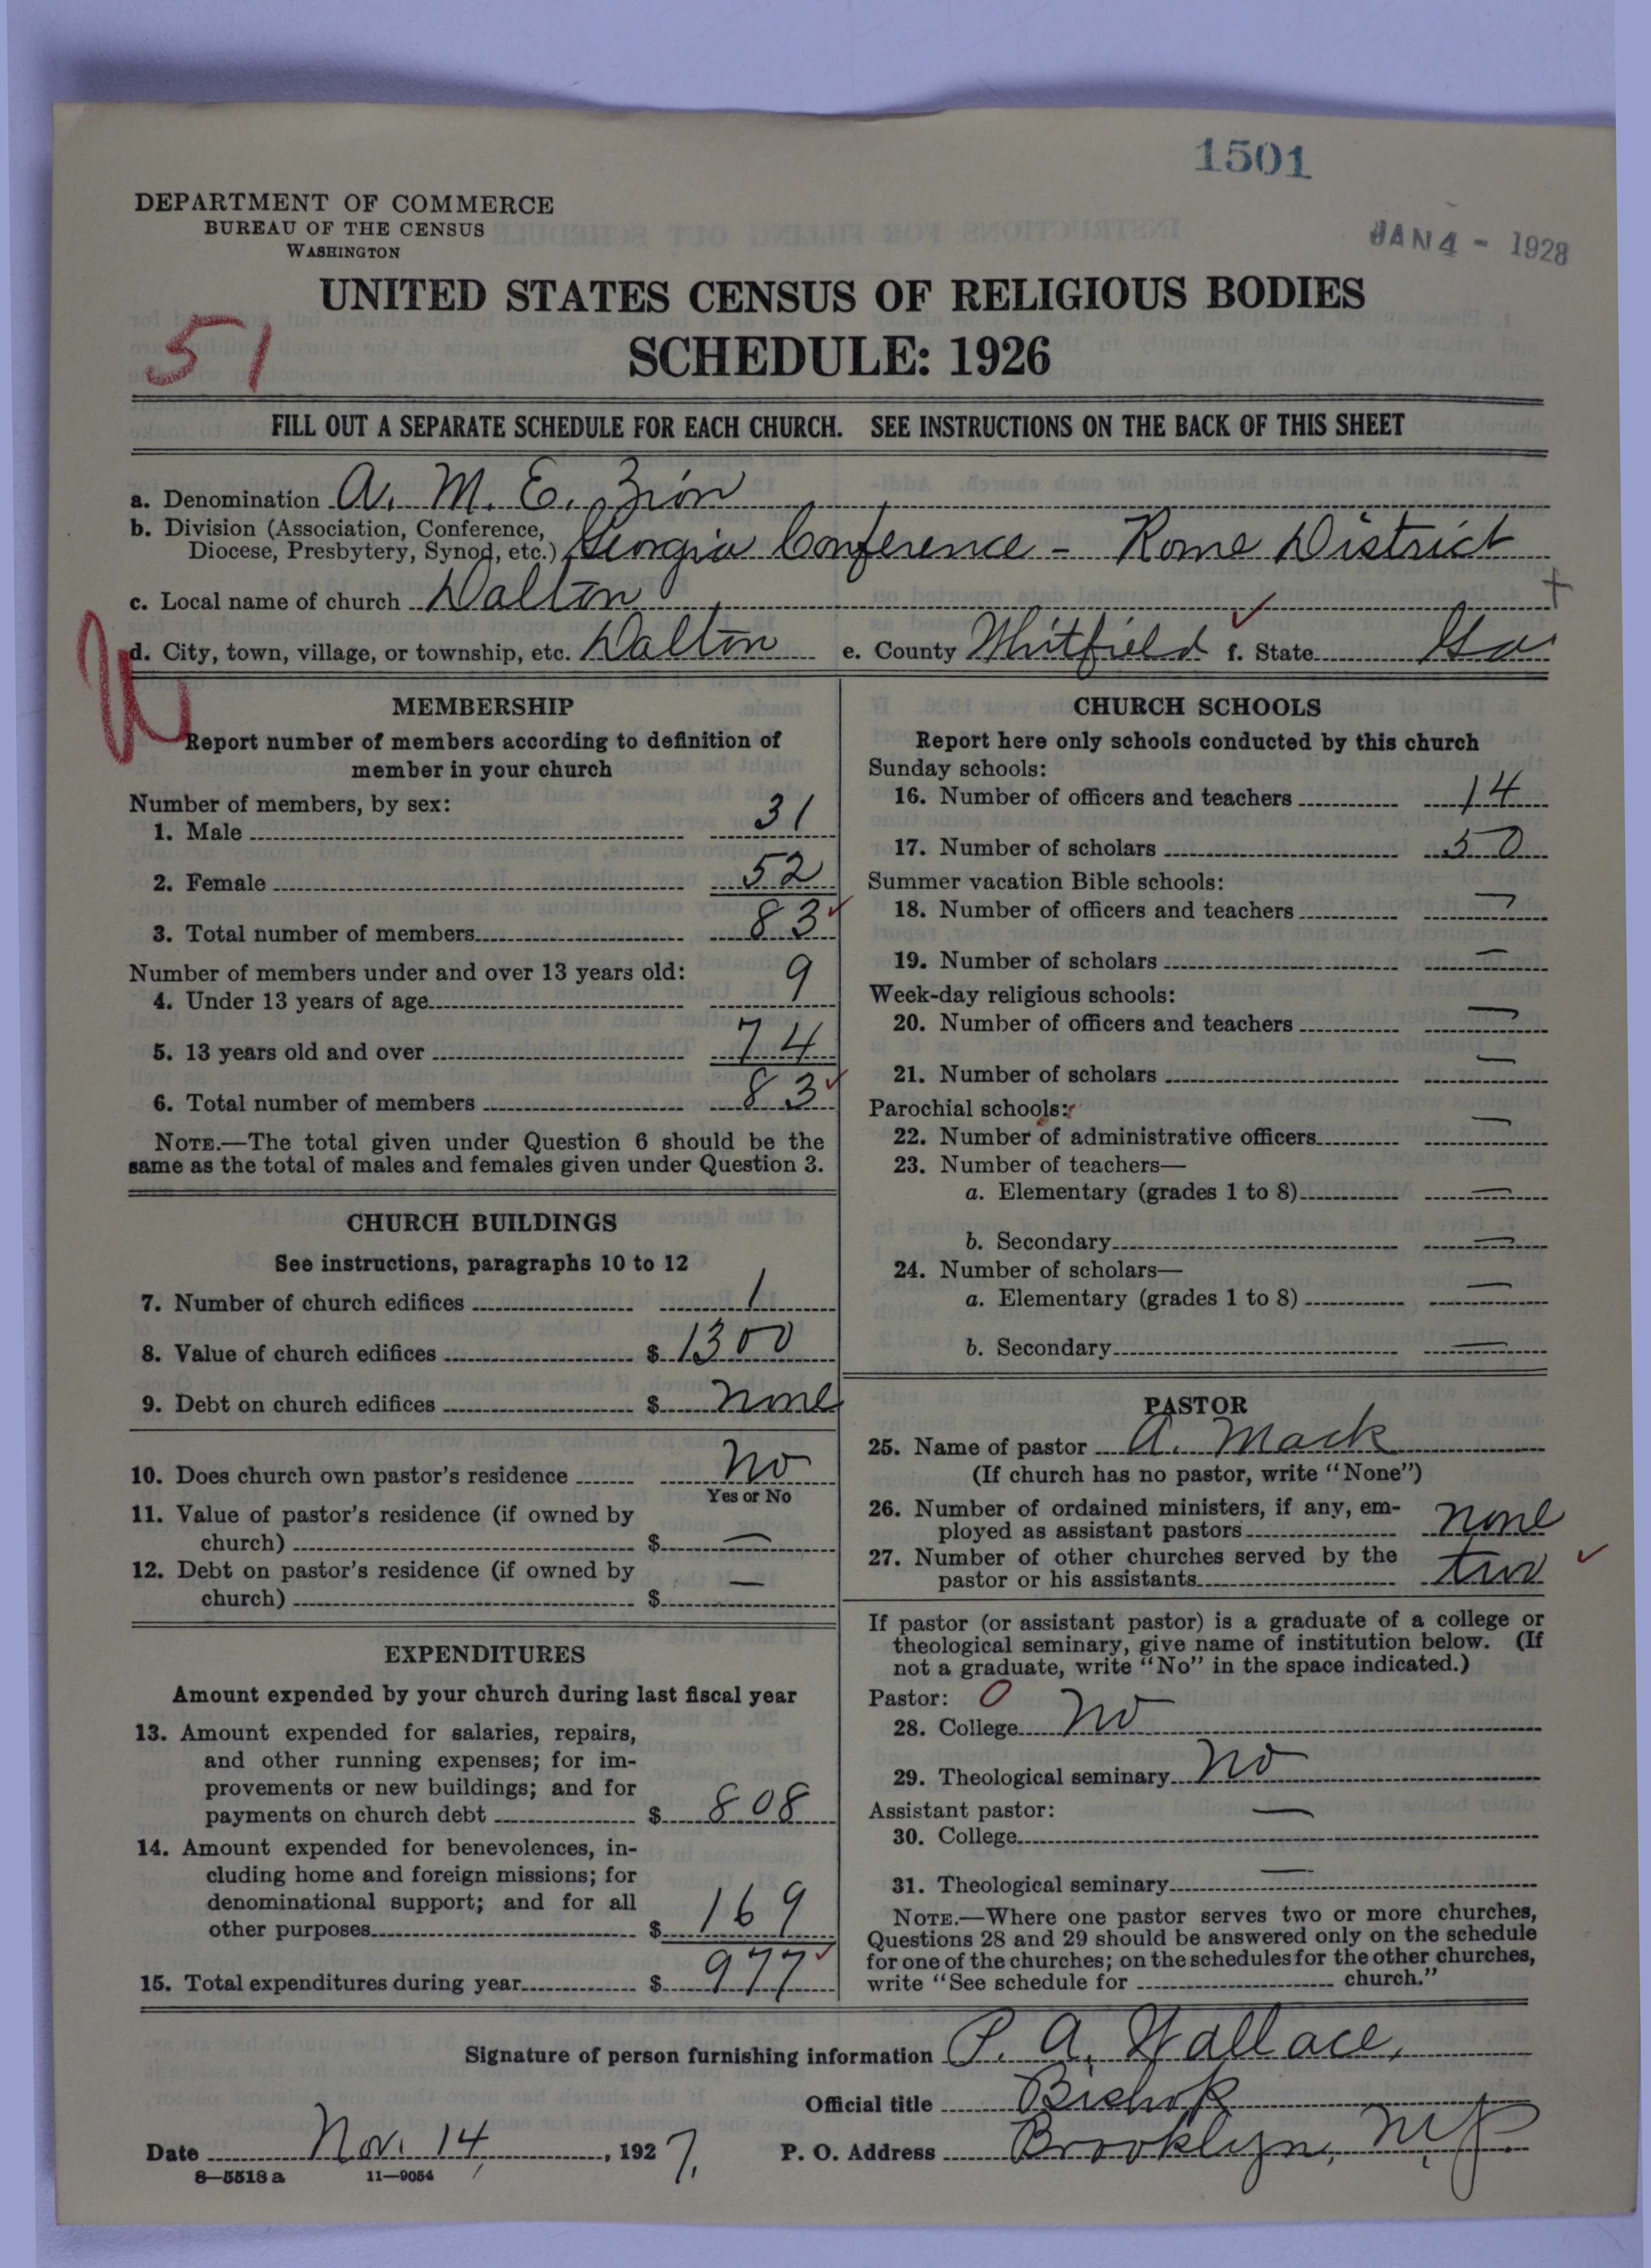 1501
JAN 4 - 1928
DEPARTMENT OF COMMERCE
BUREAU OF THE CENSUS
WASHINGTON
UNITED STATES CENSUS OF RELIGIOUS BODIES
51
SCHEDULE: 1926
FILL OUT A SEPARATE SCHEDULE FOR EACH CHURCH. SEE INSTRUCTIONS ON THE BACK OF THIS SHEET
a. Denomination A. M. E. Zion
b. Division (Association, Conference,
Diocese, Presbytery, Synod, etc.) Georgia Conference - Rome District
c. Local name of church Dalton
d. City, town, village, or township, etc. Dalton e. County Whitfield f. State Ga
MEMBERSHIP
Report number of members according to definition of
member in your church
Number of members, by sex:
1. Male 31
2. Female 52
3. Total number of members 83
Number of members under and over 13 years old:
4. Under 13 years of age 9
5. 13 years old and over 74
6. Total number of members 83
NOTE.—The total given under Question 6 should be the
same as the total of males and females given under Question 3.
CHURCH BUILDINGS
See instructions, paragraphs 10 to 12
7. Number of church edifices 1
8. Value of church edifices $ 1300
9. Debt on church edifices $ none
10. Does church own pastor's residence No
Yes or No
11. Value of pastor's residence (if owned by
church) $ —
12. Debt on pastor's residence (if owned by
church) $ —
EXPENDITURES
Amount expended by your church during last fiscal year
13. Amount expended for salaries, repairs,
and other running expenses; for im-
provements or new buildings; and for
payments on church debt $ 808
14. Amount expended for benevolences, in-
cluding home and foreign missions; for
denominational support; and for all
other purposes $ 169
15. Total expenditures during year $ 977
CHURCH SCHOOLS
Report here only schools conducted by this church
Sunday schools:
16. Number of officers and teachers 14
17. Number of scholars 50
Summer vacation Bible schools:
18. Number of officers and teachers —
19. Number of scholars —
Week-day religious schools:
20. Number of officers and teachers —
21. Number of scholars —
Parochial schools:
22. Number of administrative officers —
23. Number of teachers—
a. Elementary (grades 1 to 8) —
b. Secondary —
24. Number of scholars—
a. Elementary (grades 1 to 8) —
b. Secondary —
PASTOR
25. Name of pastor A. Mack
(If church has no pastor, write "None")
26. Number of ordained ministers, if any, em-
ployed as assistant pastors none
27. Number of other churches served by the
pastor or his assistants two
If pastor (or assistant pastor) is a graduate of a college or
theological seminary, give name of institution below. (If
not a graduate, write "No" in the space indicated.)
Pastor: 0
28. College No
29. Theological seminary No
Assistant pastor:
30. College —
31. Theological seminary —
NOTE.—Where one pastor serves two or more churches,
Questions 28 and 29 should be answered only on the schedule
for one of the churches; on the schedules for the other churches,
write "See schedule for church."
Signature of person furnishing information P. A. Wallace,
Official title Bishop
Date Nov. 14, 1927. P. O. Address Brooklyn, N.Y.
8—5518 a 11—9054